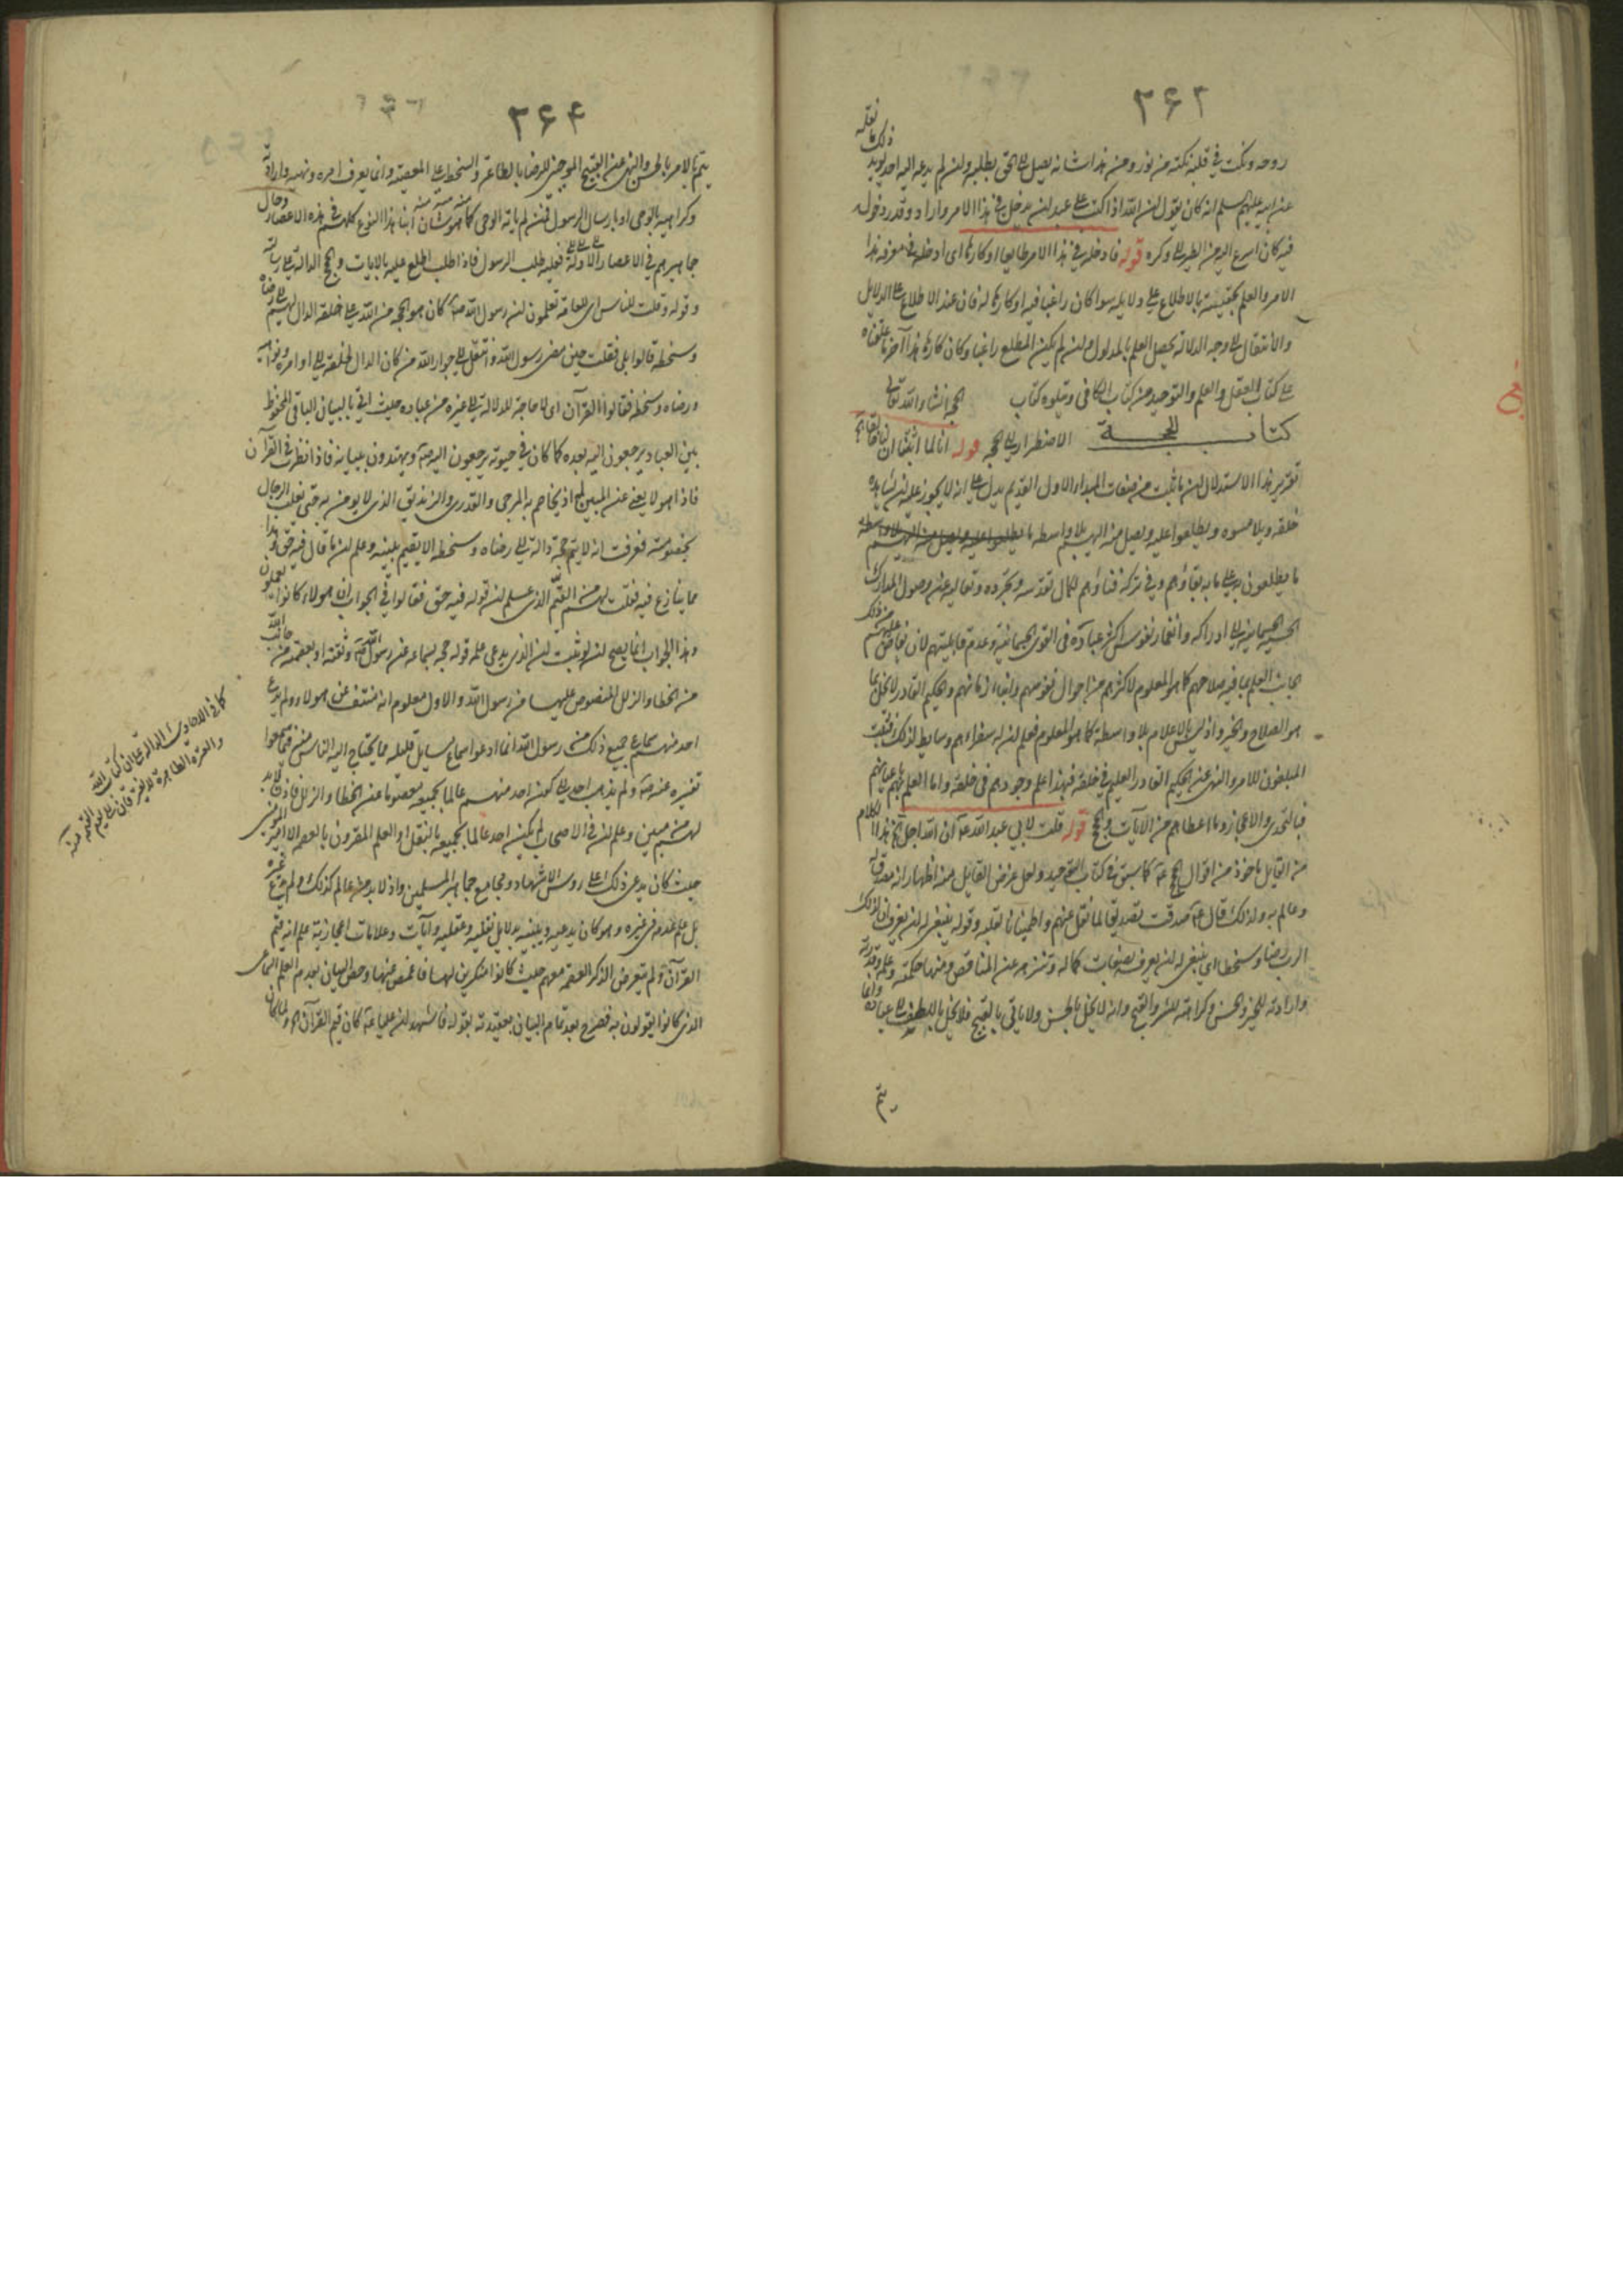 ٢۶٣
روحه ونكت في قلبه نكتة من نور ومن هذا شانه يصل الى الحق بطلبه وان لم يدعه اليه احد يويد
ذلك ما نقله
عن ابيه عليهم السلم انه كان يقول ان الله اذا كتب على عبد ان يدخل في هذا الامر واراد وقدر دخوله
فيه كان اسرع اليه من الطير الى وكره قوله فادخله في هذا الامر طايعا او كارها اى ادخله في معرفة هذا
الامر والعلم بحقيته بالاطلاع على دلايله سوا كان راغبا فيه او كارها له فان عند الاطلاع على الدلايل
والانتقال الى وجه الدلالة يحصل العلم بالمدلول وان لم يكن المطلع راغبا وكان كارها هذا آخر ما علقناه
على كتاب العقل والعلم والتوحيد من كتاب الكافي ويتلوه كتاب الحجة انشاء الله تعالى
كتاب الحجة الاضطرار الى الحجة قوله انا لما اثبتنا ان لنا خالقا الخ
تقرير هذا الاستدلال ان ما ثبت من صفات المبداء الاول القديم يدل على انه لا يجوز عليه ان يشاهده
خلقه ويلامسوه ويطلعوا عليه ويصل منه اليهم بلا واسطه
ما يطلعون به على ما به بقاؤهم وفي تركه فناؤهم لكمال تقدسه وتجرده وتعاليه عن وصول المدارك
الجسمانية الى ادراكه وانغمار نفوس اكثر عباده في القوى الجسمانية وعدم قابليتهم لان يفاض عليهم من ذلك
الجانب العلم بما فيه صلاحهم كما هو المعلوم لاكثرهم من احوال نفوسهم وابناء زمانهم والحكيم القادر لا يخل بما
هو الصلاح والخير واذ ليس بالاعلام بلا واسطة كما هو المعلوم فعلم ان له سفراءهم وسايط لذلك فثبت
المبلغون للامر والنهى عن الحكيم القادر العليم في خلقه فبهذا علم وجودهم في خلقه واما العلم بهم باعيانهم
فبالتحدى والاعجاز وما اعطاهم من الآيات والحجج قوله قلت لابي عبد الله ع ان الله اجل الخ هذا الكلام
من القايل ماخوذ من اقوال الحجج ع كما سبق في كتاب التوحيد ولعل غرض القايل منه اظهار انه مصدق له
وعالم به ولذلك قال ع صدقت تصديقا لما نقل عنهم واطمينانا لقلبه وقوله ينبغي له ان يعرف ان لذلك
الرب رضا وسخطا اى ينبغي له ان يعرفه بصفات كماله وتنزهه عن المناقص ومنها حكمته وعلمه وقدرته
وارادته للخير والحسن وكراهته للشر والقبح وانه لا يخل بالحسن ولا ياتي بالقبيح فلا يخل باللطف على عباده وانما
يتم
٢۶۴
يتم بالامر بالحسن والنهى عن القبيح الموجبين للرضا بالطاعة والسخط على المعصية وانما يعرف امره ونهيه وارادته
وكراهيته بالوحى او بارسال الرسول فمن لم ياته الوحى كما هو شان ابنا هذا النوع كلهم في هذه الاعصار وحال
جماهيرهم في الاعصار الاولة فعليه طلب الرسول فاذا طلب اطلع عليه بالايات والحجج الدالة على رسالته
وقوله وقلت للناس اى للعامة تعلمون ان رسول الله ص كان هو الحجة من الله على خلقه الدال لهم على رضاه
وسخطه قالوا بلى فقلت حين مضى رسول الله وانتقل الى جوار الله من كان الدال لخلقه الى اوامره ونواهيه
ورضاه وسخطه فقالوا القرآن اى لا حاجة للدلالة الى غيره من عباده حيث اتى بالبيان الباقي المحفوظ
بين العباد يرجعون اليه بعده كما كان في حيوته يرجعون اليه ص ويهتدون ببيانه فاذا نظرت في القرآن
فاذا هو لا يغني عن المبين له اذ يخاصم به المرجى والقدرى والزنديق الذى لا يومن به حتى يغلب الرجال
بخصومته فعرفت انه لا يتم حجة دالة الى رضاه وسخطه الا بقيم يبينه وعلم ان ما قال فيه حق وهذا
مما ينازع فيه فقلت لهم من القيم الذى علم ان قوله فيه حق فقالوا في الجواب ان هولاء كانوا يعلمون
وهذا الجواب انما يصح ان لو ثبت ان الذى يدعى علمه قوله حجة بسماعه عن رسول الله ص وثقته او بعصمته من جانب الله
من الخطا والزلل المنصوص عليها من رسول الله والاول معلوم انه منتف عن هولاء ولم يدع
احد منهم سماع جميع ذلك من رسول الله انما ادعوا سماع مسايل قليله مما يحتاج اليه الناس ممن سمعوا
تفسيره عنه ص ولم يذهب احد الى كون احد منهم عالما بجميعه معصوما عن الخطا والزلل فاذن لا بد
لهم من مبين وعلم ان في الاصحاب لم يكن احد عالما بجميعه بالنقل او العلم المقرون بالعصمة الا امير المومنين
حيث كان يدعى ذلك على روس الاشهاد ومجامع جماهير المسلمين واذ لا بد من عالم كذلك ولم يدع غيره
بل علم عدمه في غيره وهو كان يدعيه ويبينه بدلايل نقليه وعقليه وآيات وعلامات اعجازية علم انه قيم
القرآن ولم يتعرض لذكر العصمة معهم حيث كانوا منكرين لها فاغمض عنها وخص البيان بعدم العلم السماعى
الذى كانوا يقولون به فصرح بعد تمام البيان بعقيدته بقوله فاشهد ان عليا ع كان قيم القرآن
كما في الاحاديث الدالة على ان كتاب الله
والعترة الطاهرة لا يفترقان الى يوم القيمة منه